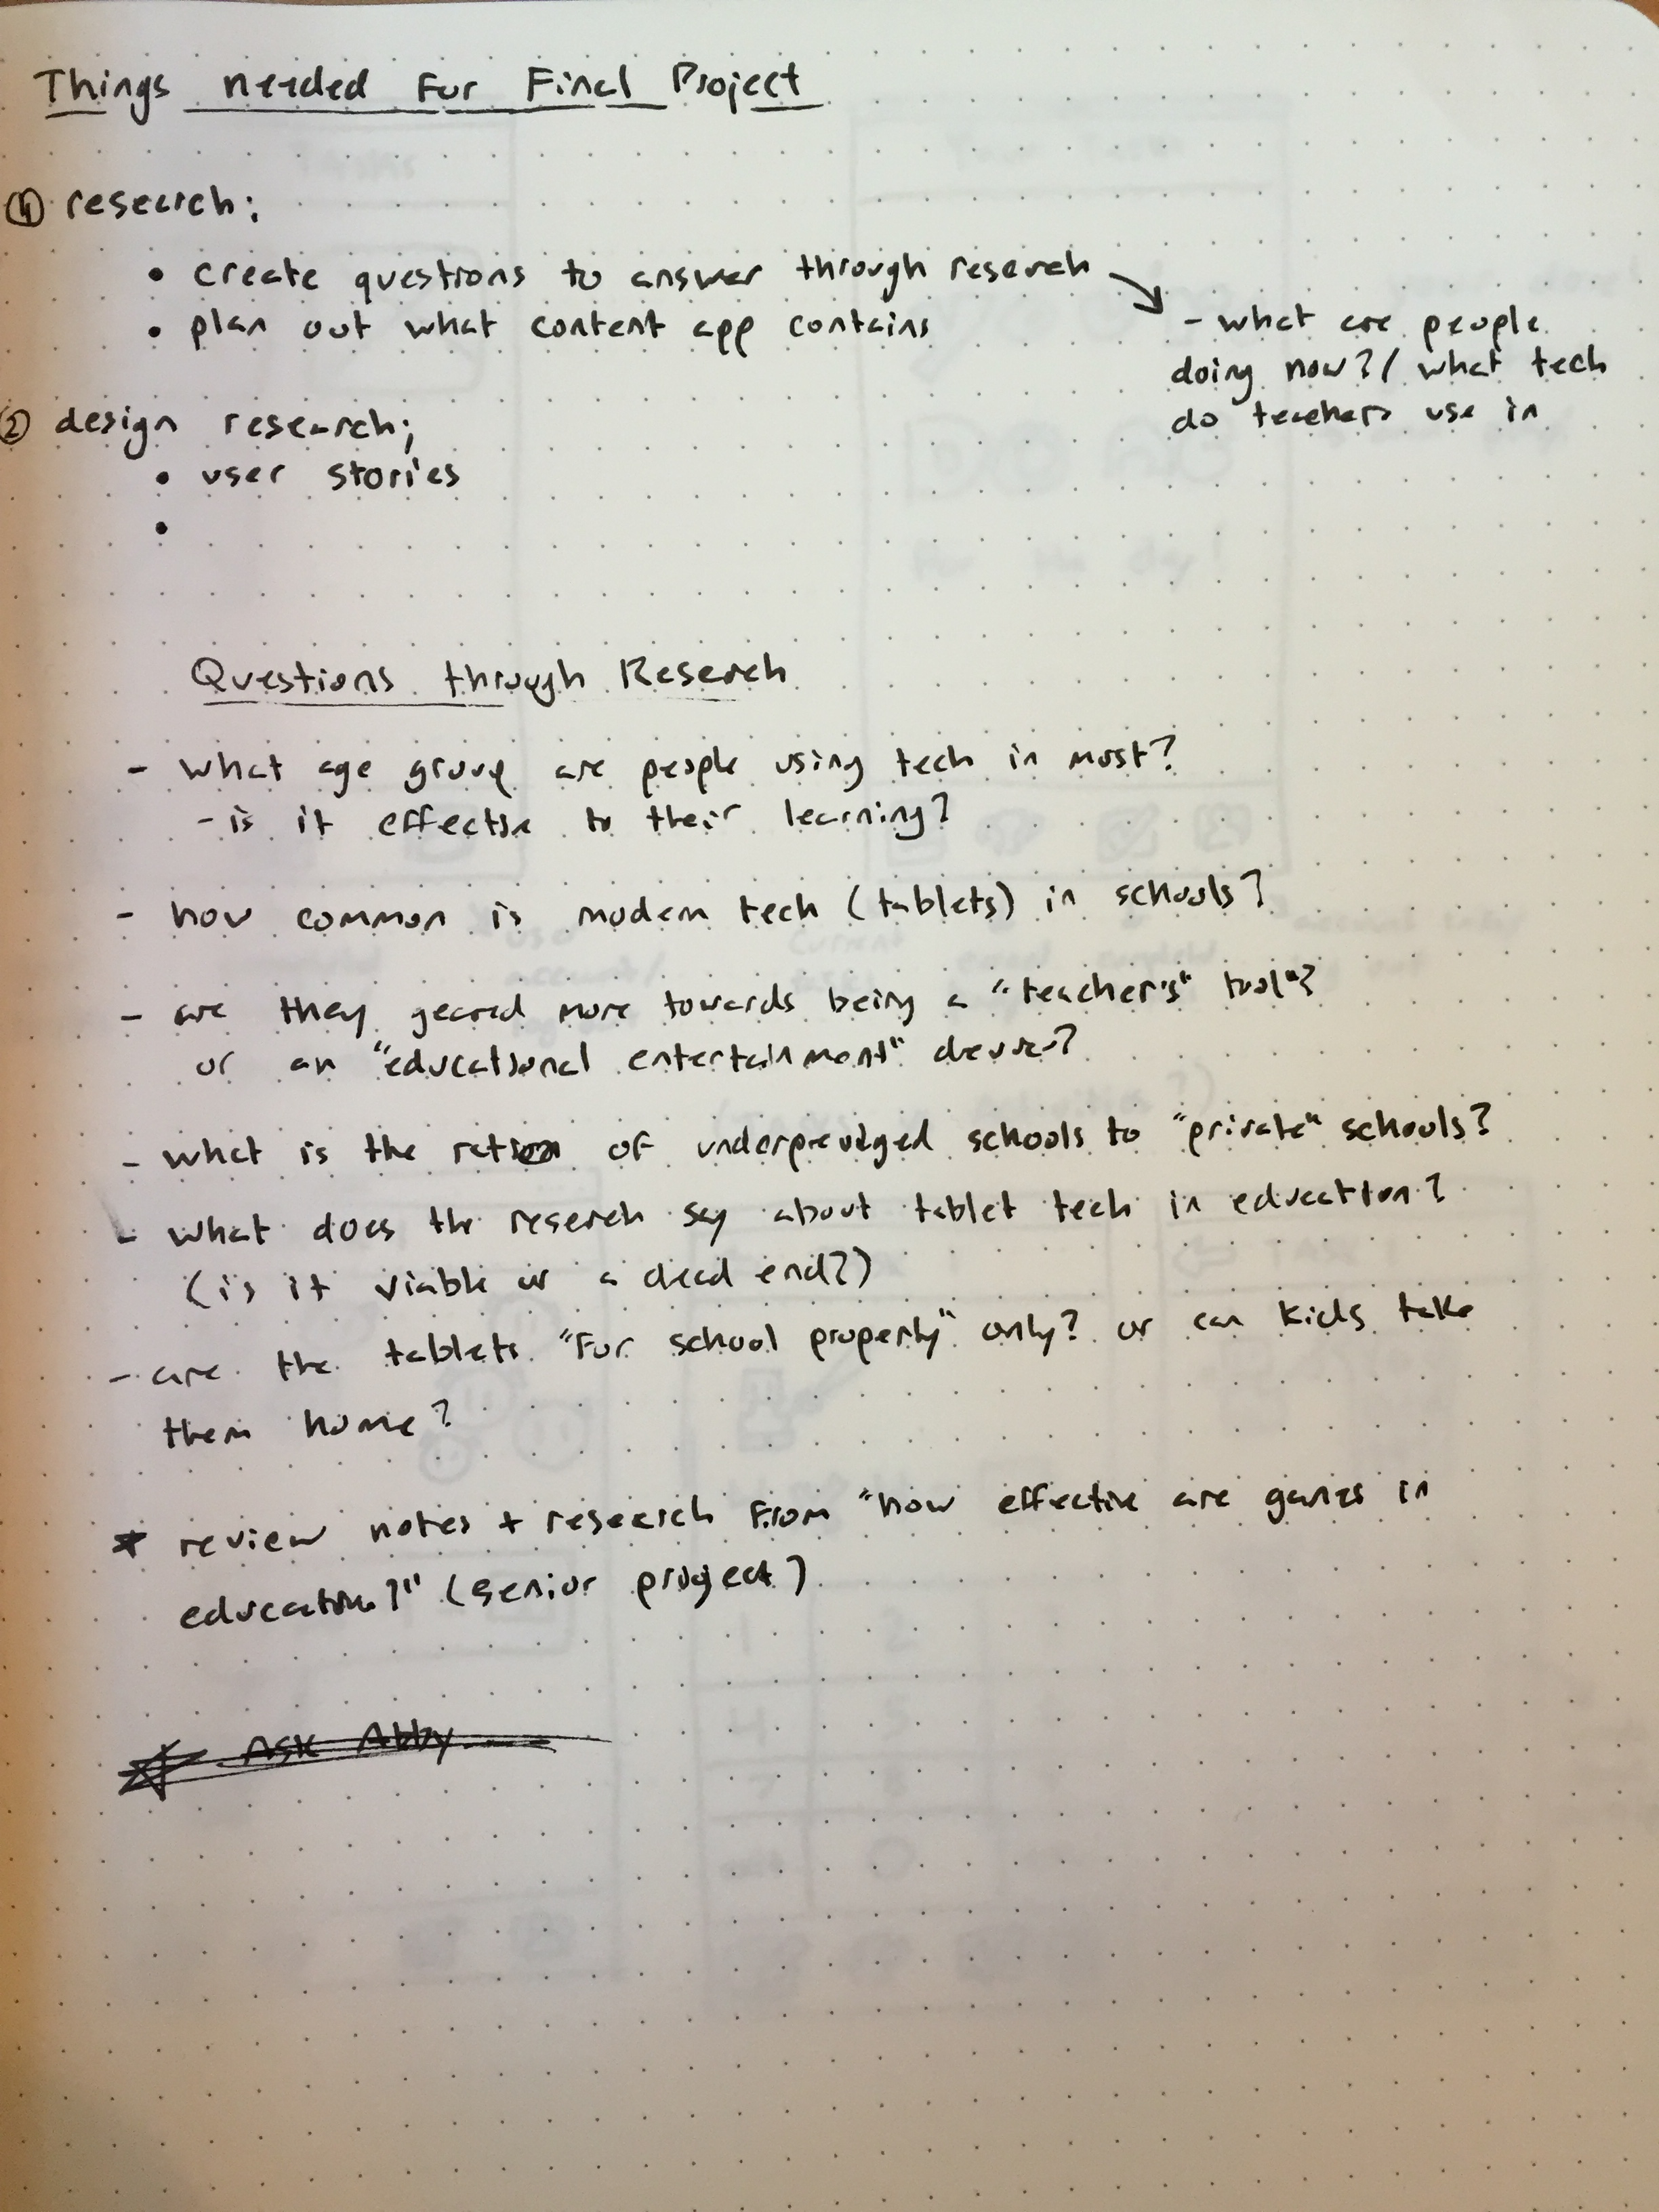 Things needed For Final Project
① research:
• create questions to answer through research
• plan out what content app contains
- what are people
doing now? / what tech
do teachers use in
② design research;
• user stories
•
Questions through Research
- what age group are people using tech in most?
- is it effective to their learning?
- how common is modern tech (tablets) in schools?
- are they geared more towards being a "teacher's" tool"?
or an "educational entertainment" device?
- what is the ratio of underpreviged schools to "private" schools?
- what does the research say about tablet tech in education?
(is it viable or a dead end?)
- are the tablets "For school property" only? or can kids take
them home?
* review notes + research From "how effective are games in
education?" (senior project)
Ask Abby